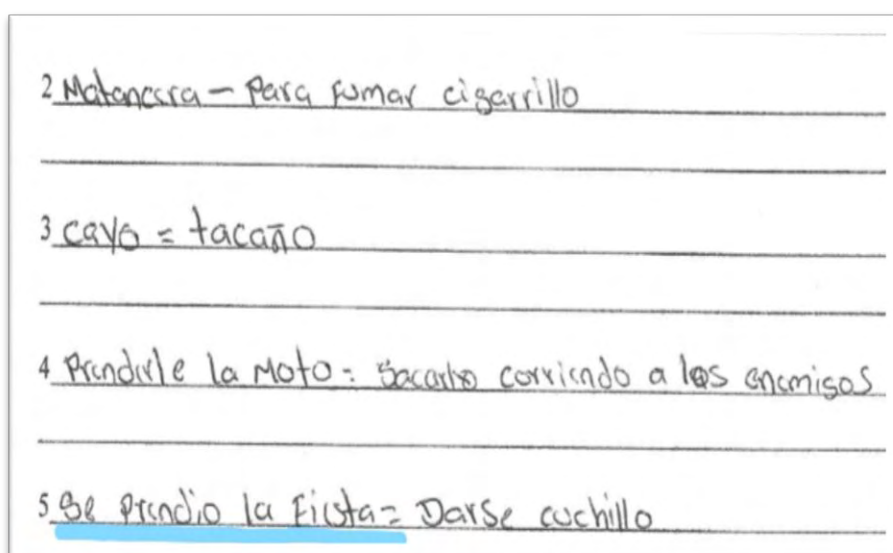 2 Matancera - Para fumar cigarrillo
3 cayo = tacaño
4 Prenderle la Moto = Sacarlo corriendo a los enemigos
5 Se prendio la Fiesta = Darse cuchillo